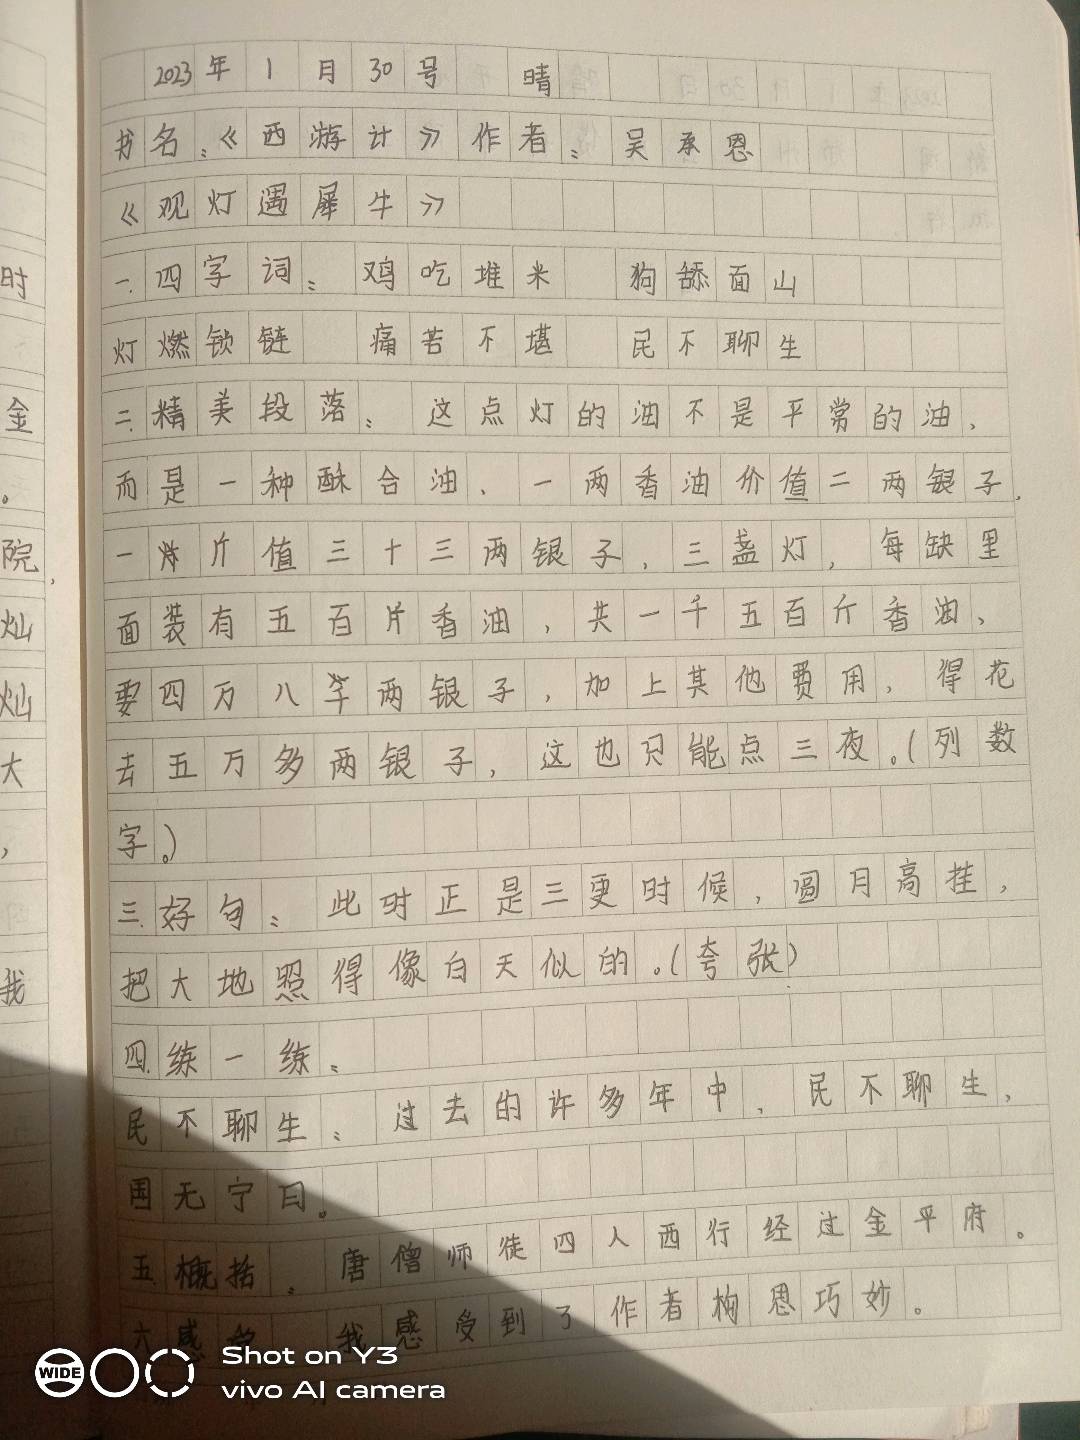 2023年1月30号 晴
书名:《西游计》作者:吴承恩
《观灯遇犀牛》
一.四字词: 鸡吃堆米 狗舔面山
灯燃锁链 痛苦不堪 民不聊生
二.精美段落: 这点灯的油不是平常的油,
而是一种酥合油、一两香油价值二两银子,
一斤值三十三两银子,三盏灯,每缺里
面装有五百片香油,共一千五百斤香油、
要四万八千两银子,加上其他费用,得花
去五万多两银子,这也只能点三夜。(列数
字。)
三.好句: 此时正是三更时候,圆月高挂,
把大地照得像白天似的。(夸张)
四.练一练:
民不聊生: 过去的许多年中,民不聊生,
国无宁日。
五.概括: 唐僧师徒四人西行经过金平府。
六感受 我感受到了作者构思巧妙。
时
金
。
院,
灿
灿
大
,
我
WIDE
Shot on Y3
vivo AI camera